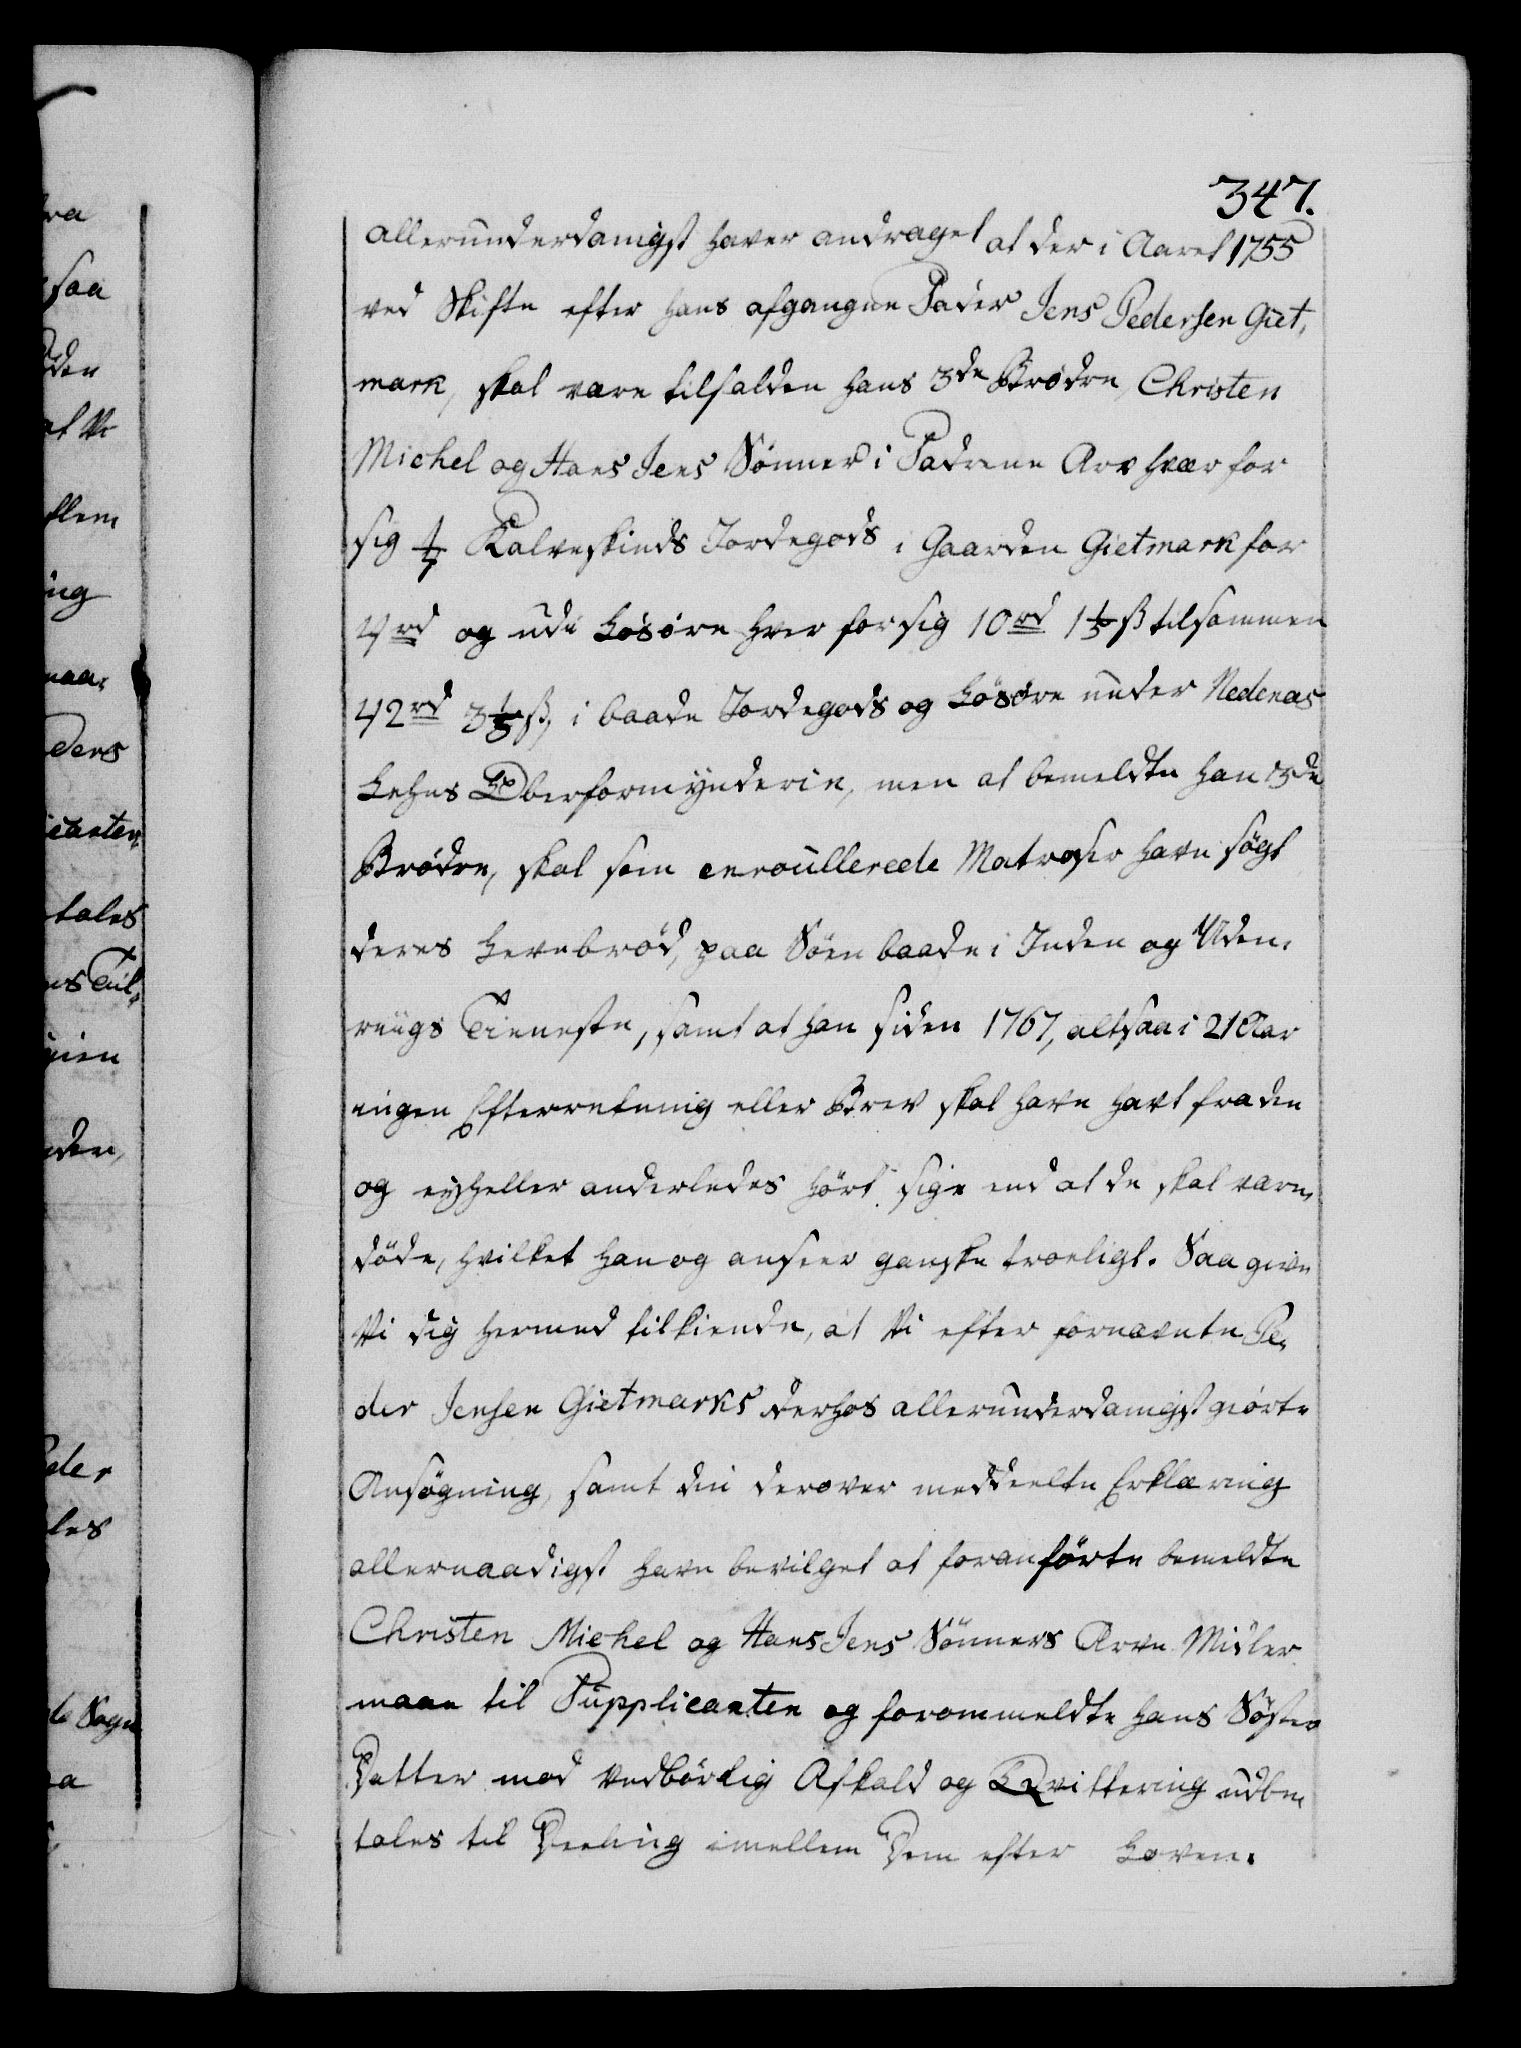 347.
allerunderdanigst haver andraget at der i Aaret 1755
ved Skifte efter hans afgangne Fader Jens Pedersen Giet,
mark, skal være tilfalden hans 3de Brödre, Christen
Michel og Hans Jens Sönner i Fadrene Arv hver for
sig 1/7 Kalveskinds Jordegods i Gaarden Gietmark for
4rd og udi Lösöre hver for sig 10rd 1 1/3 ß tilsammen
42rd 3 1/3 ß, i baade Jordegods og Lösöre under Nedenæs
Lehns Oberformynderie, men at bemeldte han 3de
Brödre, skal som enroullerede Matroser have sögt
deres Levebröd, paa Söen baade i Inden og Uden,
riigs Tieneste, samt at han siden 1767, altsaa i 21 Aar
ingen Efterretning eller Brev skal have havt fra dem
og eyheller anderledes hört sige end at de skal være
döde, hvilket han og anseer ganske troeligt. Saa give
Vi dig hermed tilkiende, at Vi efter fornævnte Pe,
der Jensen Gietmarks derhos allerunderdanigst giörte
Ansögning, samt din derover meddeelte Erklæring
allernaadigst have bevilget at foranförte bemeldte
Christen Michel og Hans Jens Sönners Arve Midler
maae til Supplicanten og forommeldte hans Söster
Datter mod vedbörlig Afkald og Qvittering udbe,
tales til Deeling imellem Dem efter Loven.